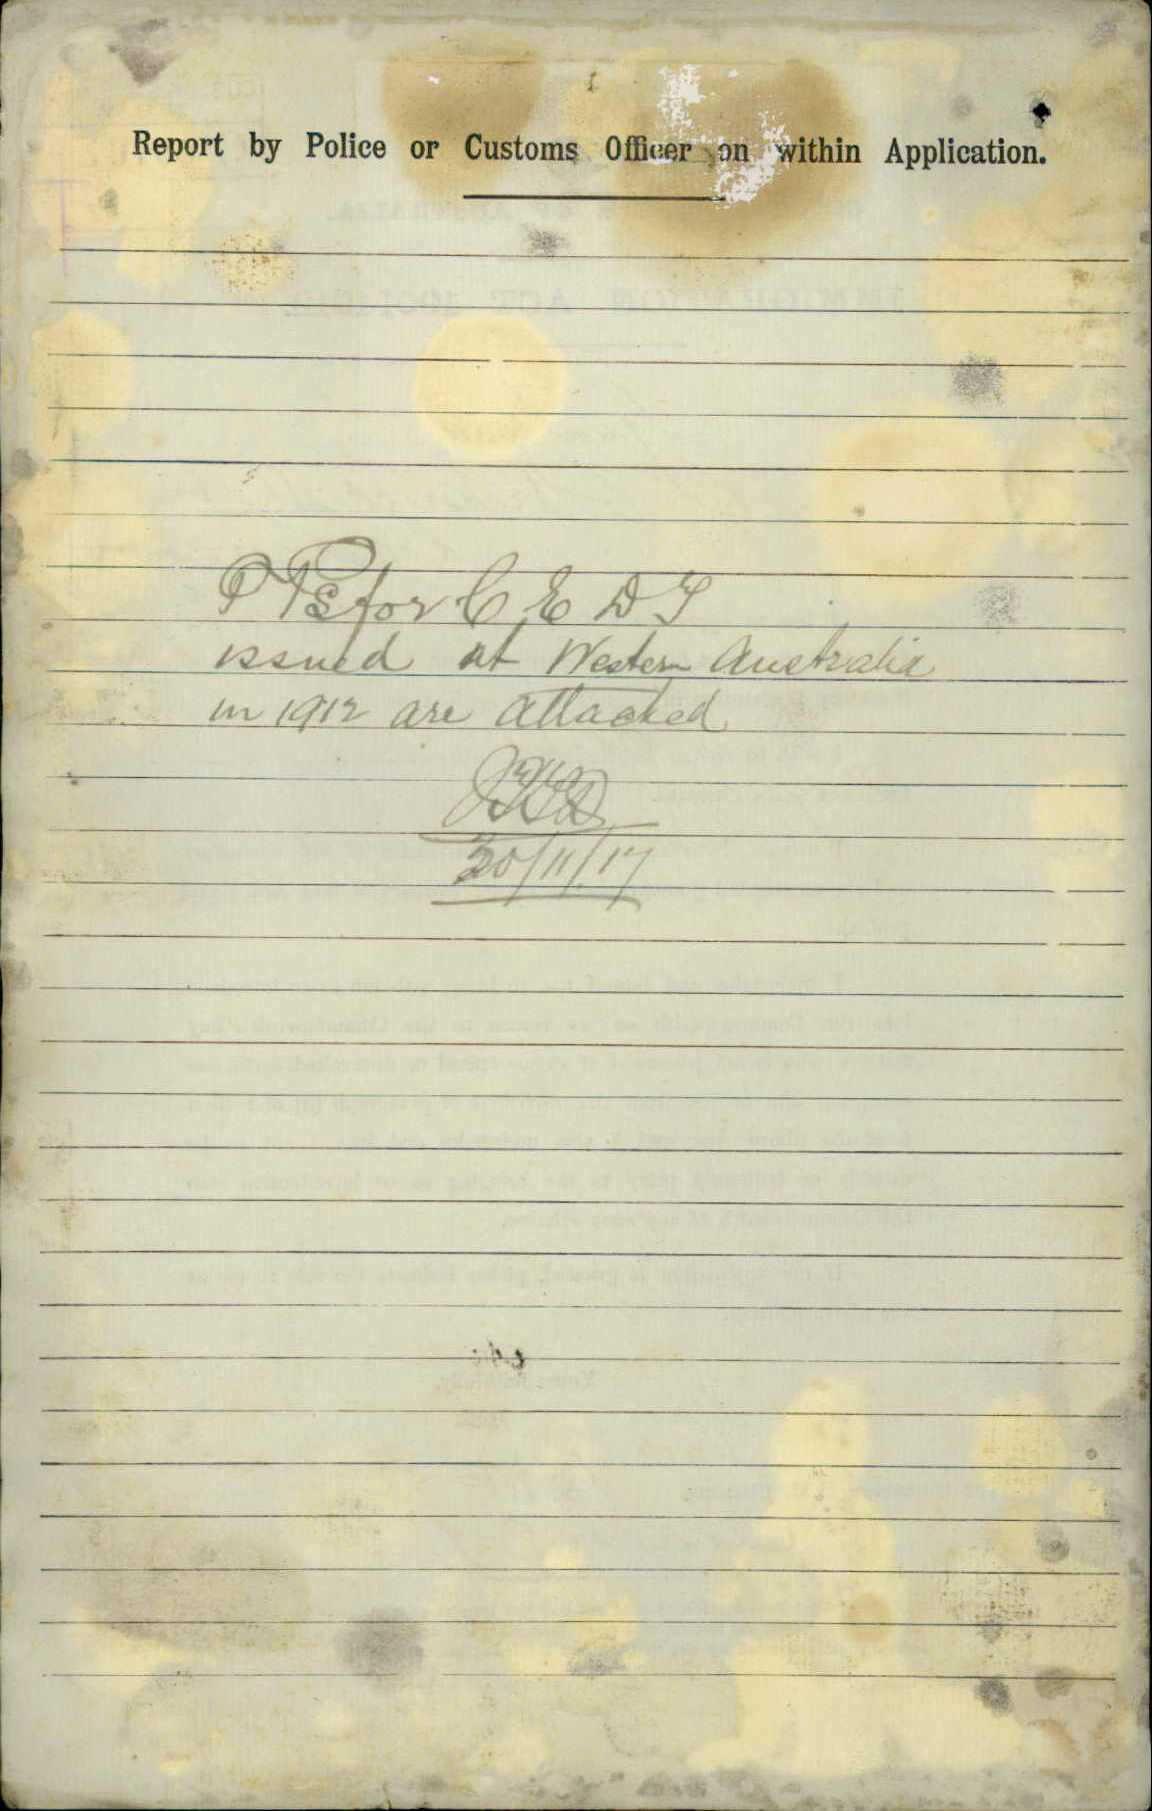 Report by Police or Customs Officer on within Application.
for C E D T
issued at Western Australia
in 1912 are attached
30/11/17